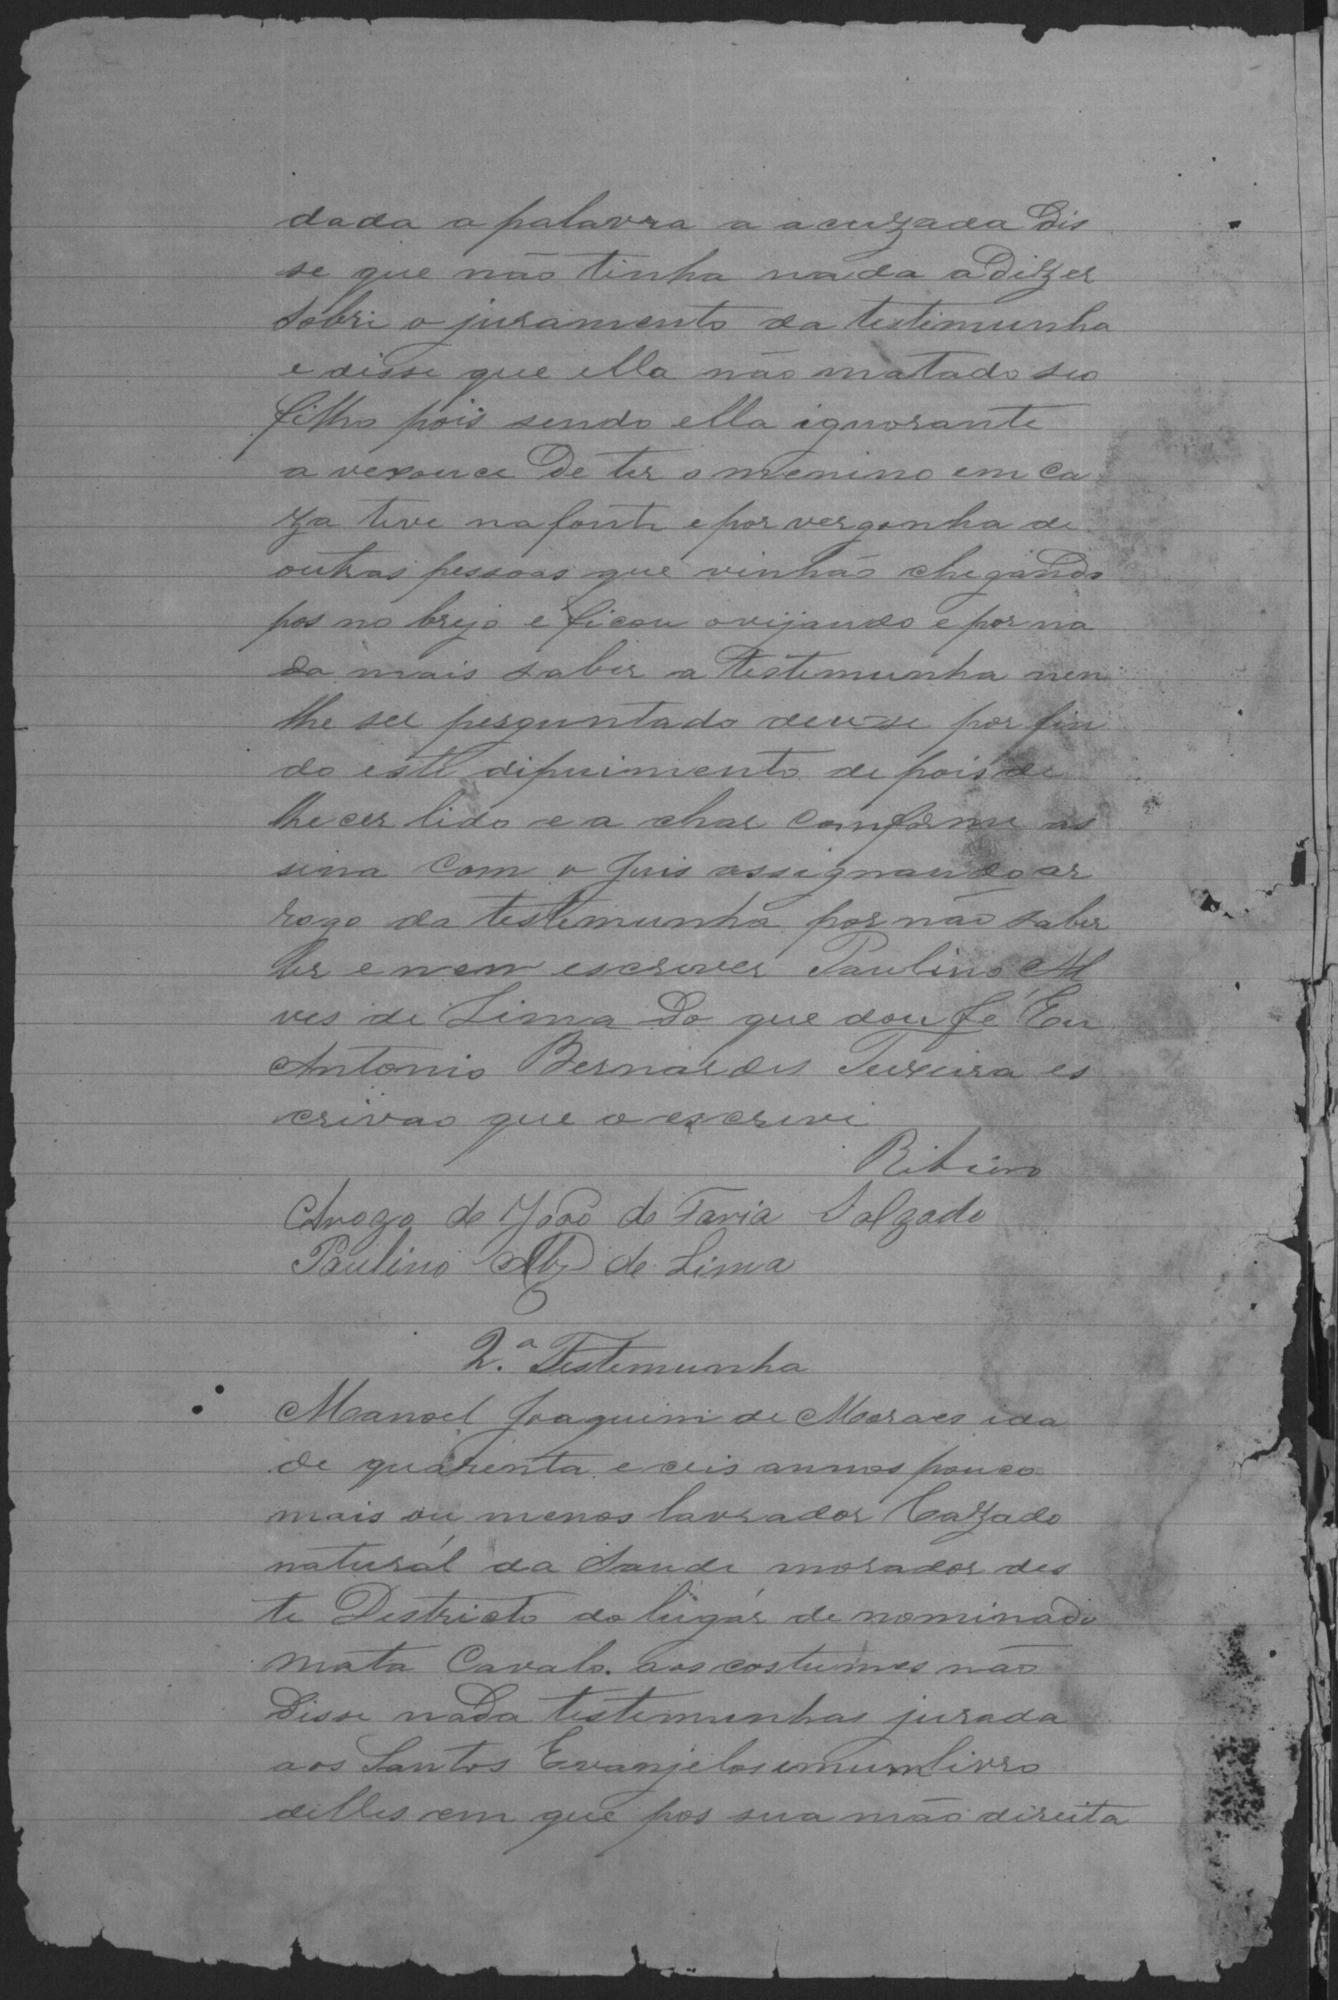 dada a palavra a acuzada dis
se que não tinha nada a dizer
sobri o juramento da testimunha
e disse que ella não matado seo
filho pois sendo ella ignorante
a De ter o menino em ca
za teve na fonte e por vergonha de
outras pessoas que vinhão chegando
pos no brejo e ficou e por na
da mais saber a testemunha nen
lhe ser perguntado deu-se por fin
do este dipuimento de pois de
lhe cer lido e a char comforme as
sina com o Juis assignando ar
rogo da testemunha por não saber
ler e nem escrever Paulino Al
ves de Lima do que dou fé Eu
Antonio Bernardes Teixeira es
crivao que o escrevi
Ribeiro
Arogo de João de Faria Salgado
Paulino Alz de Lima
2.ª Testemunha
Manoel Joaquim de Moraes ida
de quarenta e ceis annos pouco
mais ou menos lavrador Cazado
naturál da Saude morador des
te Destricto do lugár de nominado
Mata Cavalo. aos costumes não
disse nada testemunhas jurada
aos Santos Evanjelos em um livro
delles em que pos sua mão direita